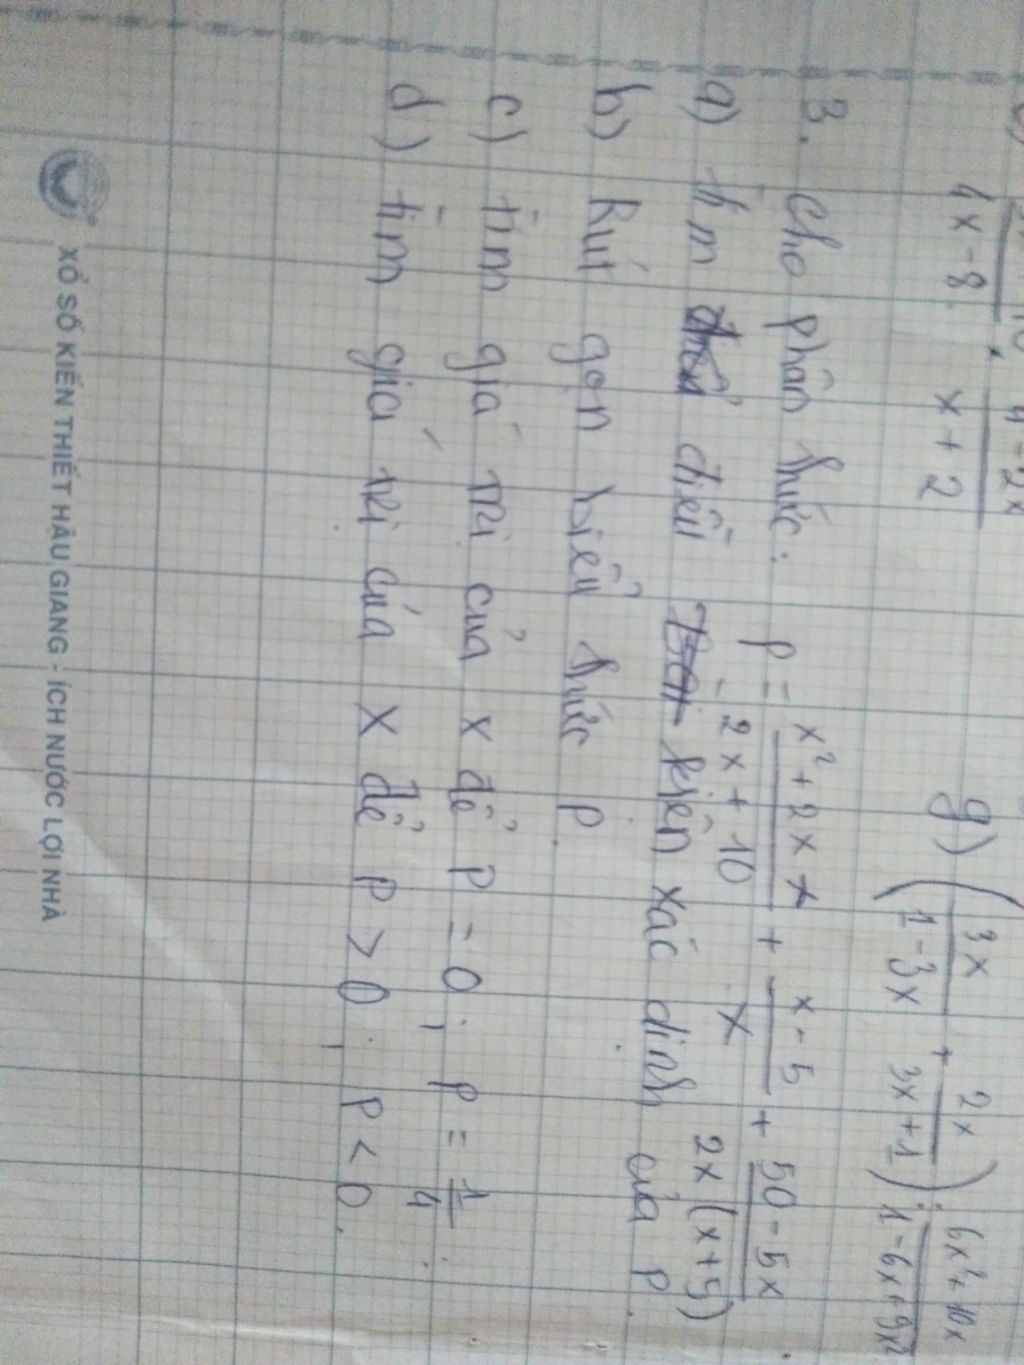 4x - 8    x + 2
4 - 2x
g) (3x/(1 - 3x) + 2x/(3x + 1)) : (6x² + 10x)/(1 - 6x + 9x²)
3. Cho phân thức: P = (x² + 2x)/(2x + 10) + (x - 5)/x + (50 - 5x)/(2x(x + 5))
a) tìm điều kiện xác định của P.
b) Rút gọn biểu thức P.
c) tìm giá trị của x để P = 0; P = 1/4.
d) tìm giá trị của x để P > 0; P < 0.
XỔ SỐ KIẾN THIẾT HẬU GIANG - ÍCH NƯỚC LỢI NHÀ